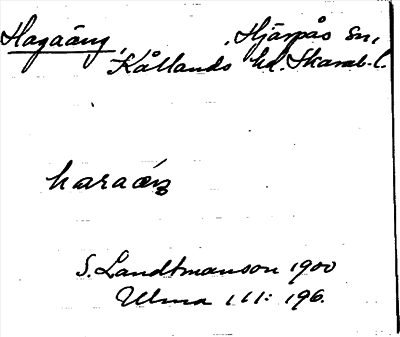 Hagaäng, Hjärpås sn,
Kållands hd. Skarab. l.
S. Landtmanson 1900
Ulma 111: 196.